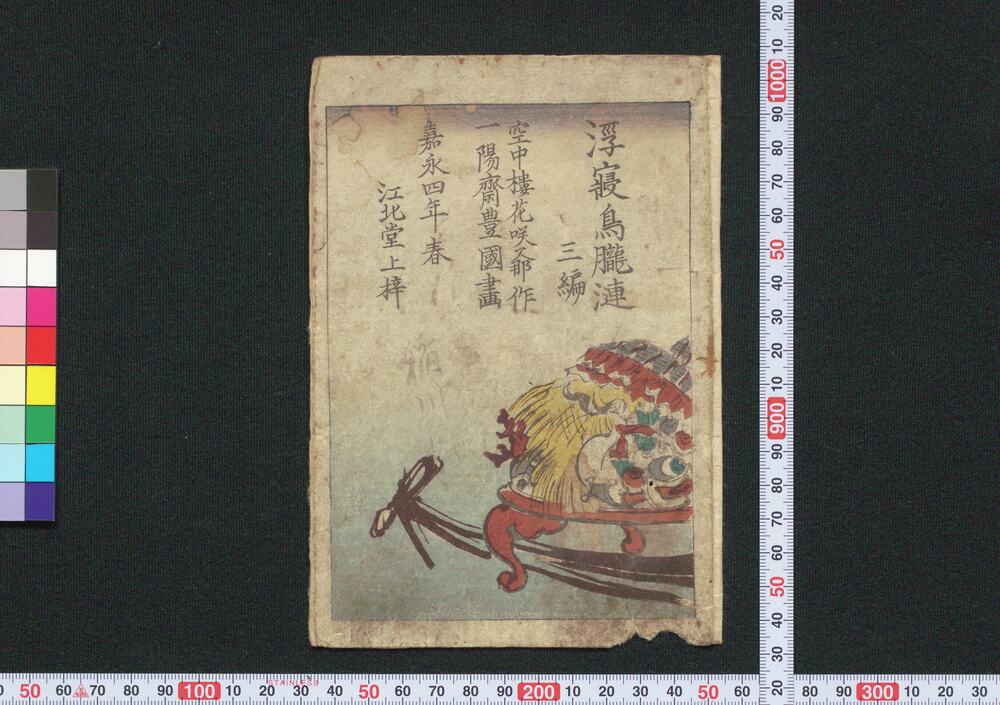 浮寝鳥朧漣
三編
空中樓花咲爺作
一陽齋豊國畫
嘉永四年春
江北堂上梓
20
10
1000
90
80
70
60
50
40
30
20
10
900
90
80
70
60
50
40
30
20
STAINLESS
0 50 60 70 80 90 100 10 20 30 40 50 60 70 80 90 200 10 20 30 40 50 60 80 90 300 10 20 30